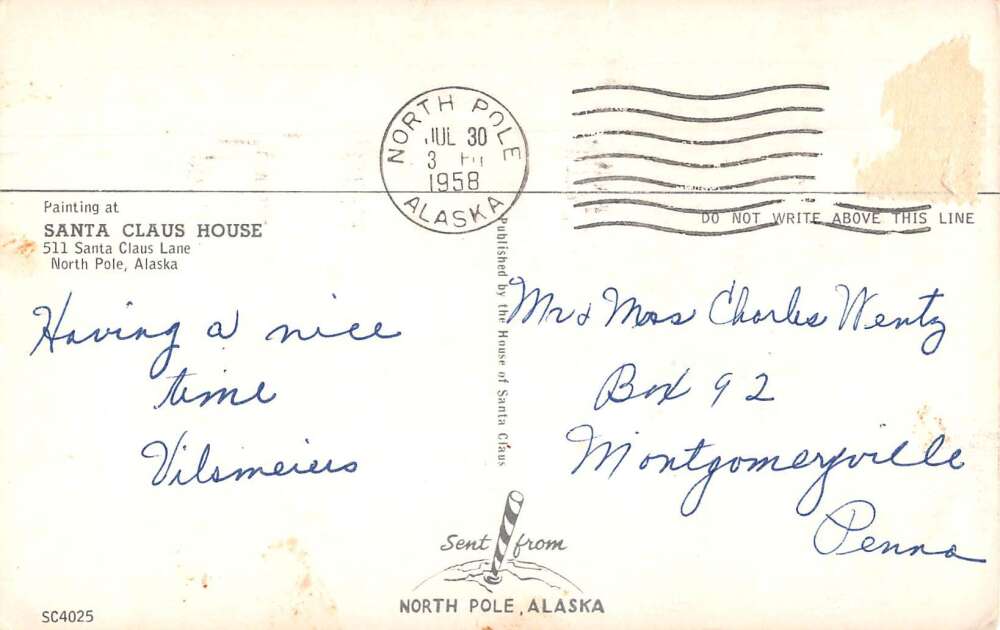 NORTH POLE
JUL 30
3 PM
1958
ALASKA
DO NOT WRITE ABOVE THIS LINE
Painting at
SANTA CLAUS HOUSE
511 Santa Claus Lane
North Pole, Alaska
Having a nice
time
Vilsmeiers
Published by the House of Santa Claus
Mr & Mrss Charles Wentz
Box 92
Montgomeryville
Penna
Sent from
NORTH POLE, ALASKA
SC4025